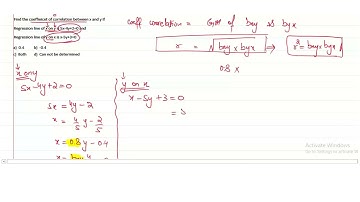 Find the coefficient of correlation between x and y if
Regression line of x on y is 5x-4y+2=0 and
Regression line of y on x is x-5y+3=0
a) 0.4 b) -0.4
c) Both d) Can not be determined
coeff correlation = GM of bxy & byx
r = √bxy x byx ⇒ r² = bxy byx
0.8 x
x on y
5x - 4y + 2 = 0
5x = 4y - 2
x = 4/5 y - 2/5
x = 0.8 y - 0.4
y on x
x - 5y + 3 = 0
=
Activate Windows